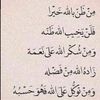 مِن ظَنَّ بِاللهِ خَيْرًا
فَلَنْ يَخِيبَ اللهُ ظَنَّهُ
وَمَنْ شَكَرَ اللهَ عَلَى نِعَمِهِ
زَادَهُ اللهُ مِنْ فَضْلِهِ
وَمَنْ تَوَكَّلَ عَلَى اللهِ فَهُوَ حَسْبُهُ